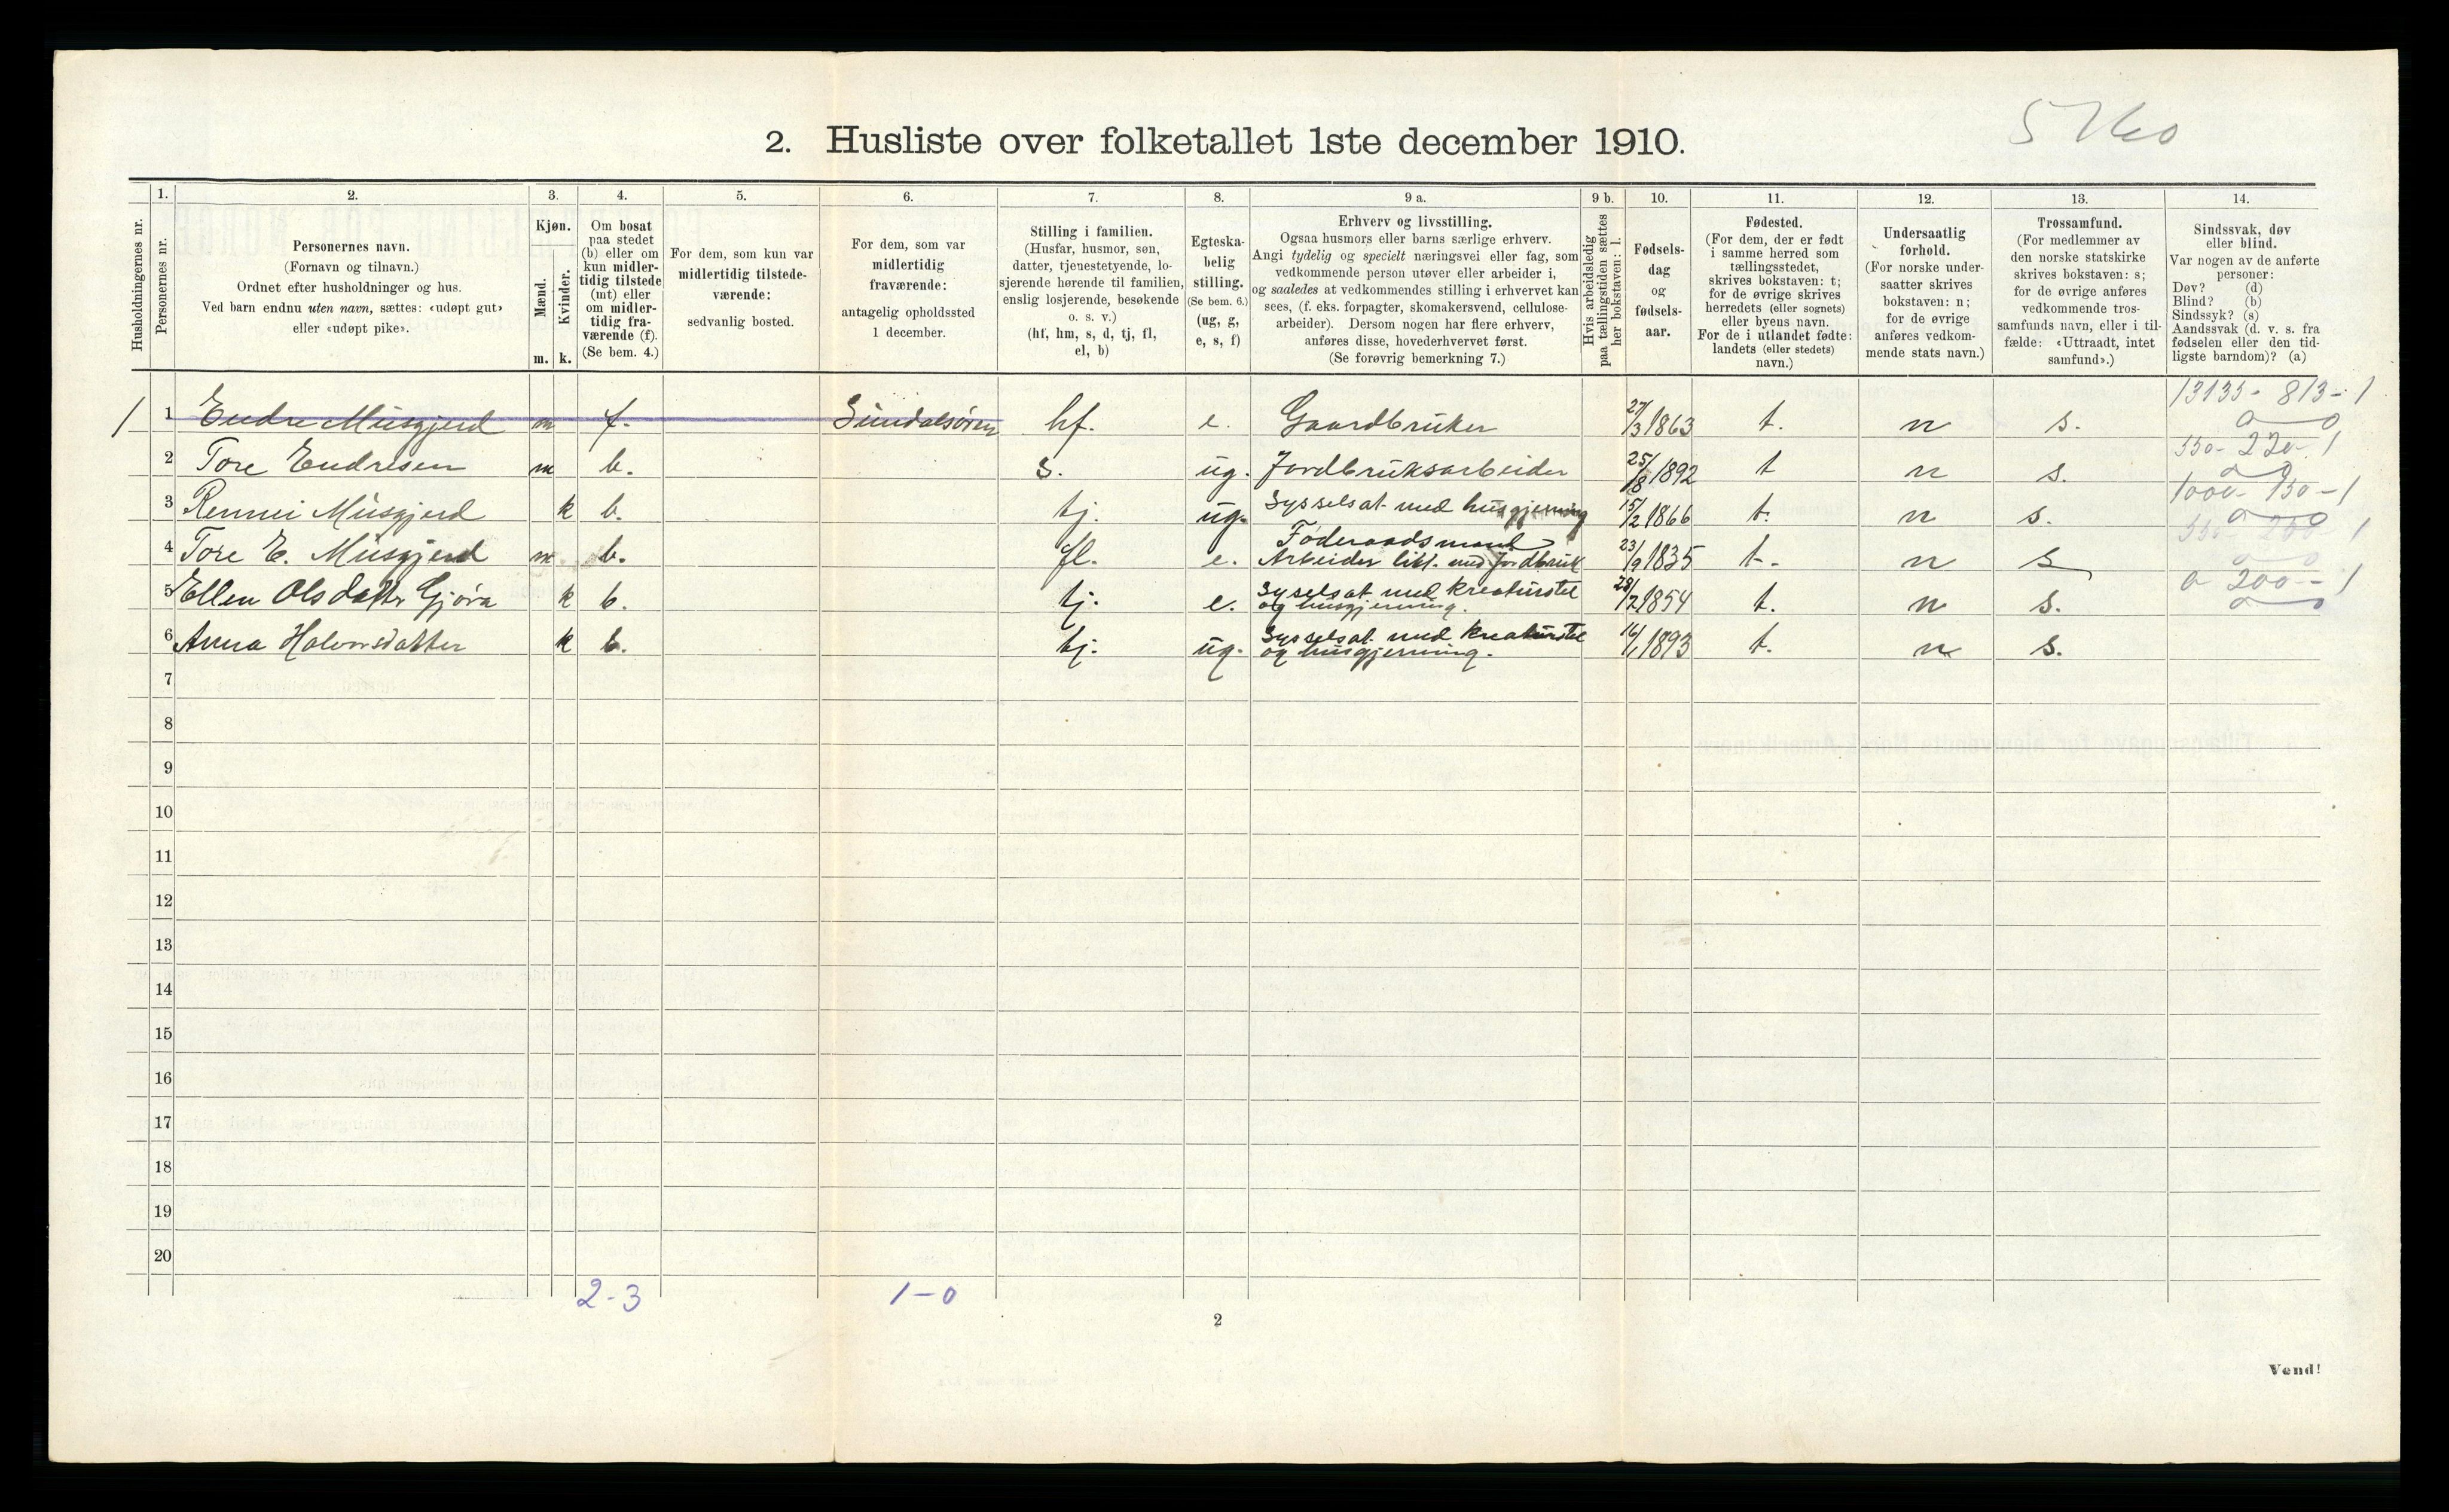 2. Husliste over folketallet 1ste december 1910.
Husholdningernes nr.
1.
Personernes nr.
2.
Personernes navn.
(Fornavn og tilnavn.)
Ordnet efter husholdninger og hus.
Ved barn endnu uten navn, sættes: «udøpt gut»
eller «udøpt pike».
3.
Kjøn.
Mænd.
Kvinder.
m. k.
4.
Om bosat
paa stedet
(b) eller om
kun midler-
tidig tilstede
(mt) eller
om midler-
tidig fra-
værende (f).
(Se bem. 4.)
5.
For dem, som kun var
midlertidig tilstede-
værende:
sedvanlig bosted.
6.
For dem, som var
midlertidig
fraværende:
antagelig opholdssted
1 december.
7.
Stilling i familien.
(Husfar, husmor, søn,
datter, tjenestetyende, lo-
sjerende hørende til familien,
enslig losjerende, besøkende
o. s. v.)
(hf, hm, s, d, tj, fl,
el, b)
8.
Egteska-
belig
stilling.
(Se bem. 6.)
(ug, g,
e, s, f)
9 a.
Erhverv og livsstilling.
Ogsaa husmors eller barns særlige erhverv.
Angi tydelig og specielt næringsvei eller fag, som
vedkommende person utøver eller arbeider i,
og saaledes at vedkommendes stilling i erhvervet kan
sees, (f. eks. forpagter, skomakersvend, cellulose-
arbeider). Dersom nogen har flere erhverv,
anføres disse, hovederhvervet først.
(Se forøvrig bemerkning 7.)
9 b.
Hvis arbeidsledig
paa tællingstiden sættes
her bokstaven: l.
10.
Fødsels-
dag
og
fødsels-
aar.
11.
Fødested.
(For dem, der er født
i samme herred som
tællingsstedet,
skrives bokstaven: t;
for de øvrige skrives
herredets (eller sognets)
eller byens navn.
For de i utlandet fødte:
landets (eller stedets)
navn.)
12.
Undersaatlig
forhold.
(For norske under-
saatter skrives
bokstaven: n;
for de øvrige
anføres vedkom-
mende stats navn.)
13.
Trossamfund.
(For medlemmer av
den norske statskirke
skrives bokstaven: s;
for de øvrige anføres
vedkommende tros-
samfunds navn, eller i til-
fælde: «Uttraadt, intet
samfund».)
14.
Sindssvak, døv
eller blind.
Var nogen av de anførte
personer:
Døv? (d)
Blind? (b)
Sindssyk? (s)
Aandssvak (d. v. s. fra
fødselen eller den tid-
ligste barndom)? (a)
1 1 Endre Musgjerd m f. Sundalsøren hf. e. Gaardbruker 27/3 1863 t. n s.
2 Tore Endresen m b. s. ug. Jordbruksarbeider 25/8 1892 t n s.
3 Rennei Musgjerd k b. tj. ug. Sysselsat med husgjerning 15/2 1866 t. n s.
4 Tore E. Musgjerd m b. fl. e. Føderaadsmand
Arbeider litt. med Jordbruk 23/9 1835 t. n s
5 Ellen Olsdatter Gjøra k b. tj. e. Syselsat med kreaturstel
og husgjerning. 28/2 1854 t. n s.
6 Anna Halvorsdatter k b. tj. ug. Sysselsat med kreaturstel
og husgjerning. 16/1 1893 t. n s.
7
8
9
10
11
12
13
14
15
16
17
18
19
20
2-3 1-0
2
Vend!